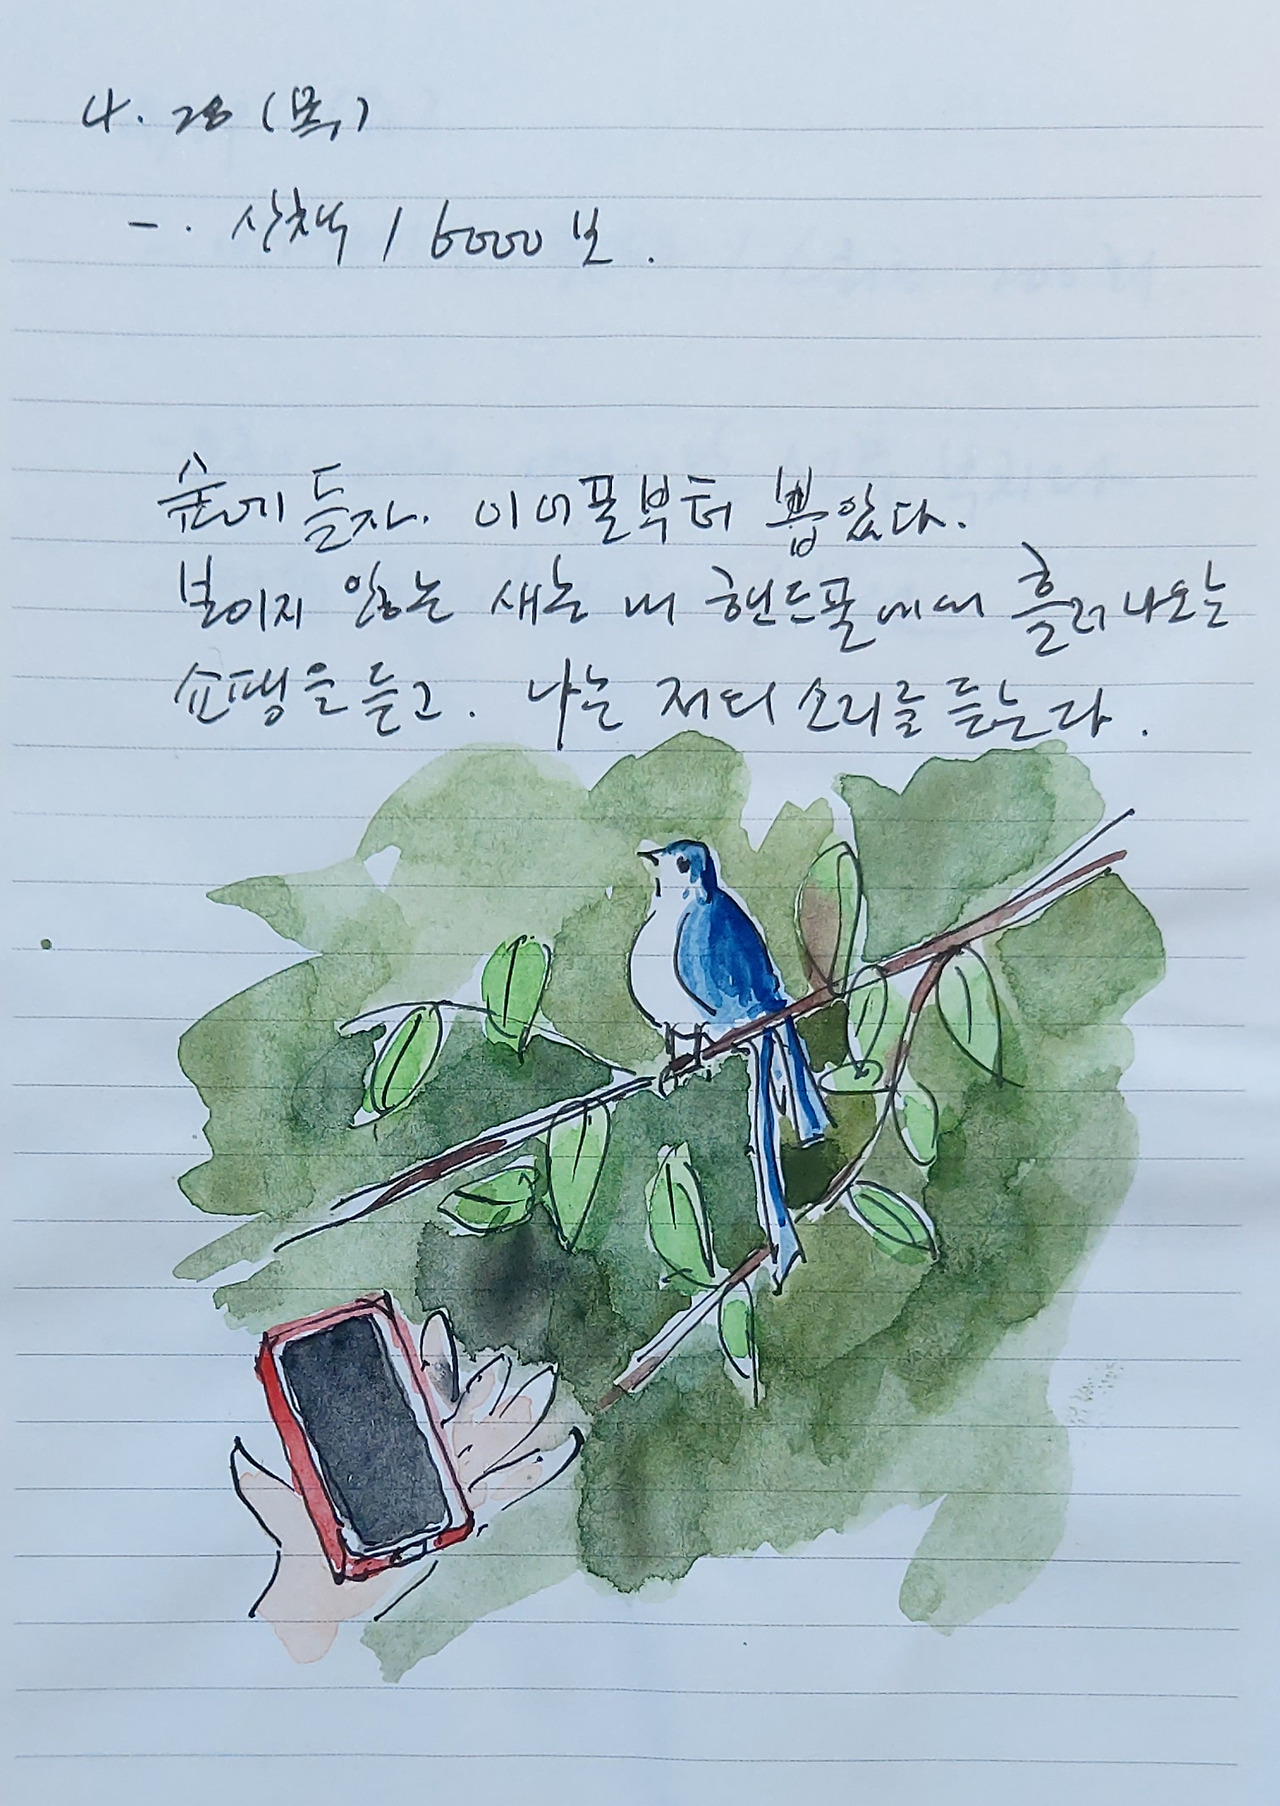 4. 28 (목)
-. 산책 / 6000 보.
숲에 들자. 이어폰부터 뽑았다.
보이지 않는 새는 내 핸드폰에서 흘러나오는
쇼팽을 듣고. 나는 저의 소리를 듣는다.